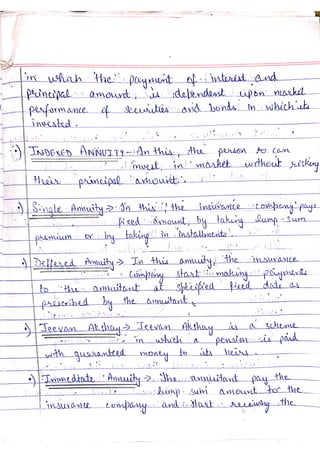 in which the payment of interest and
principal amount, is dependent upon market
performance of securities and bonds in which its
invested.
•) INDEXED ANNUITY - In this, the person to can
invest, in market without risking
their principal amount.
•) Single Annuity → In this the insurance company pays
fixed amount, by taking lump-sum
premium or by taking in installments.
•) Deffered Annuity → In this annuity, the insurance
company start making payments
to the annuitant at specified fixed date as
prescribed by the annuitant.
•) Jeevan Akshay → Jeevan Akshay is a scheme
in which a pension is paid
with guaranteed money to its heirs.
•) Immediate Annuity → The annuitant pay the
lump sum amount to the
insurance company and start receiving the